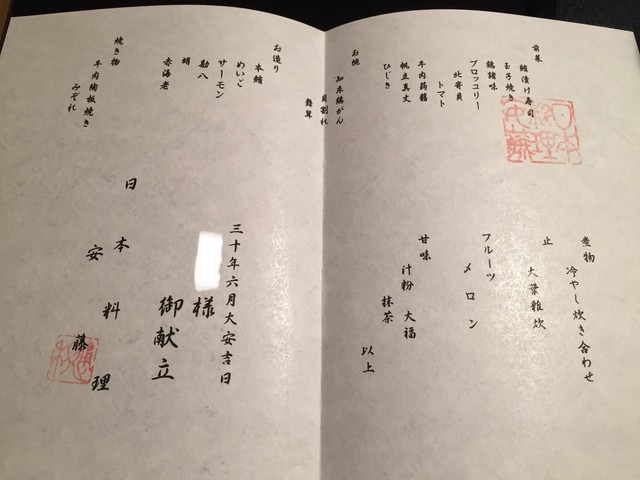 前菜
鮪漬け寿司
玉子焼き
鶏諸味
ブロッコリー
北寄貝
トマト
牛肉蒟蒻
帆立真丈
ひじき
お椀
知床鶏がん
貝割れ
舞茸
お造り
本鮪
めいご
サーモン
勘八
蛸
赤海老
焼き物
牛肉陶板焼き
みぞれ
煮物
冷やし炊き合わせ
止
大葉雑炊
フルーツ
メロン
甘味
汁粉 大福
抹茶
以上
三十年六月大安吉日
様
御献立
日本料理
安藤